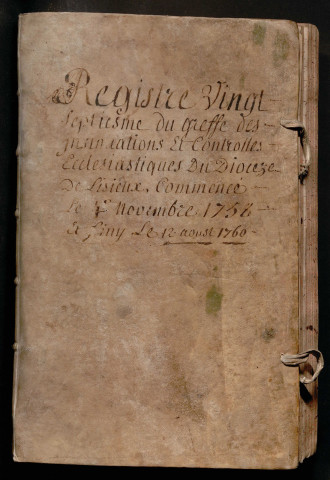 Registre Vingt
Septiesme du greffe des
Insinuations Et Controlles
Ecclesiastiques Du Dioceze
De Lisieux, Commencé
Le 4e Novembre 1758
& finy Le 12 aoust 1760